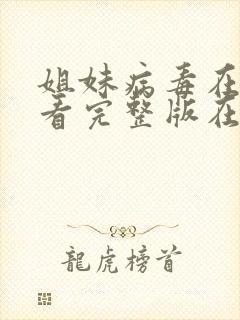 姐妹病毒在
看完整版在
龍虎榜首